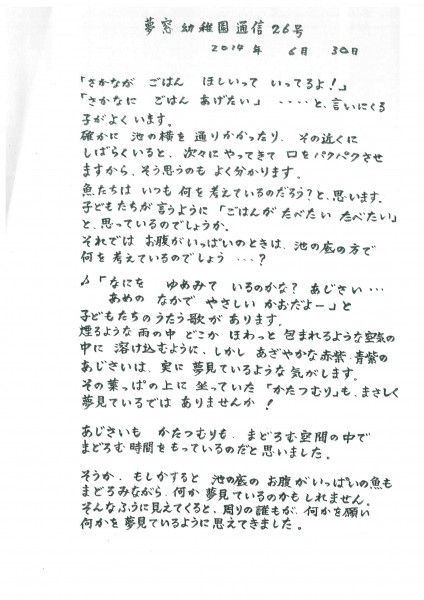 夢窓幼稚園通信26号
2014年 6月 30日
「さかなが ごはん ほしいって いってるよ!」
「さかなに ごはん あげたい」 ‥‥と、言いにくる
子がよくいます。
確かに 池の横を 通りかかったり、その近くに
しばらくいると、次々に やってきて 口をパクパクさせ
ますから、そう思うのも よく分かります。
魚たちは いつも 何を考えているのだろう?と、思います。
子どもたちが 言うように「ごはんが たべたい たべたい」
と、思っているのでしょうか。
それでは お腹がいっぱいのときは、池の底の方で
何を考えているのでしょう ‥‥?
♪「なにを ゆめみて いるのかな? あじさい‥‥
あめの なかで やさしい かおだよー」と
子どもたちのうたう歌が あります。
煙るような 雨の中 どこか ほわっと 包まれるような空気の
中に 溶け込むように、しかし あざやかな赤紫・青紫の
あじさいは、実に 夢見ているような 気がします。
その葉っぱの上に 坐っていた「かたつむり」も、まさしく
夢見ているでは ありませんか!
あじさいも かたつむりも、まどろむ空間の中で
まどろむ時間をもっているのだと思いました。
そうか、もしかすると 池の底の お腹がいっぱいの魚も
まどろみながら、何か 夢見ているのかもしれません。
そんなふうに見えてくると、周りの誰もが、何かを願い
何かを夢見ているように思えてきました。